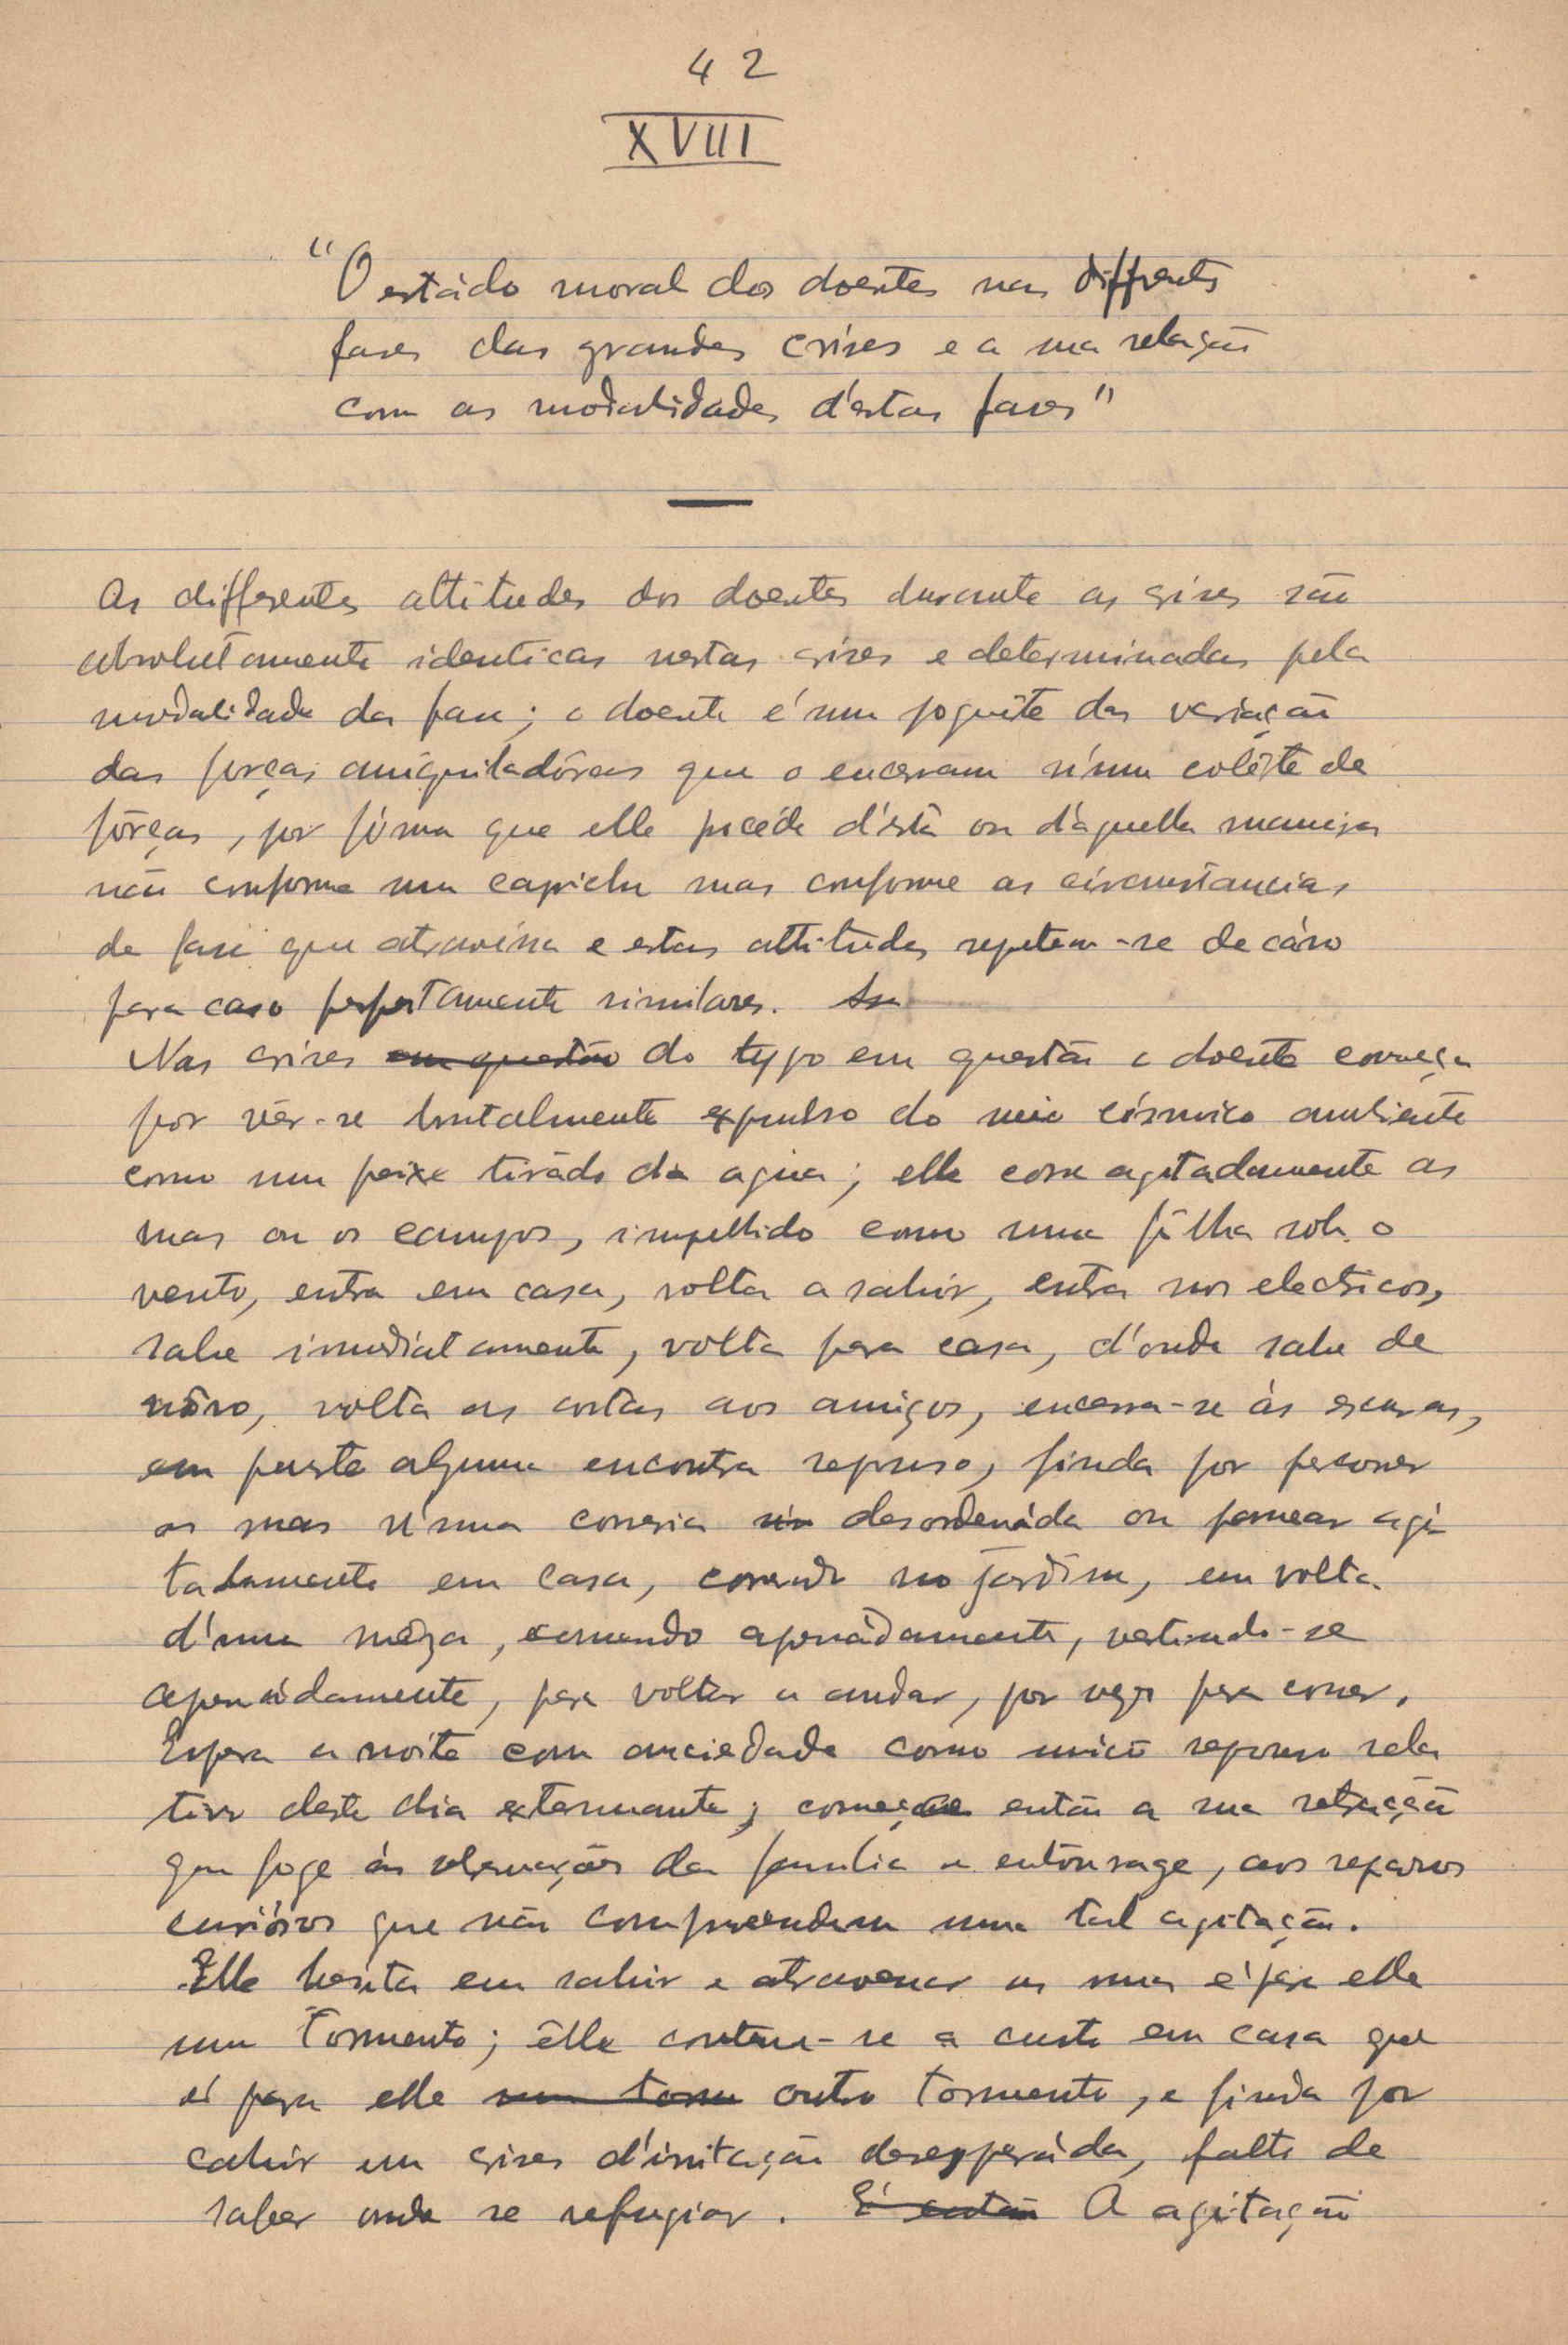 42
XVIII
"O estádo moral dos doentes nas differentes
fases das grandes crises e a sua relação
com as modalidades d'estas fases"
As differentes attitudes dos doentes durante as crises são
absolutamente identicas nestas crises e determinadas pela
modalidade da fase; o doente é um joguête da variação
das forças aniquiladôras que o encerram n'um colête de
fôrças, por fórma que elle procéde d'esta ou d'aquella maneira
não conforme um capricho mas conforme as circunstancias
da fase que atravéssa e estas attitudes repetem-se de cáso
para caso perfeitamente similares.
Nas crises em questão do typo em questão o doente começa
por vêr-se brutalmente expulso do meio cósmico ambiente
como um peixe tirádo da agua; elle corre agitadamente as
ruas ou os campos, impellido como uma fôlha sob o
vento, entra em casa, volta a sahir, entra nos electricos,
sahe imediatamente, volta para casa, d'onde sahe de
nôvo, volta as costas aos amigos, encerra-se ás escuras,
em parte alguma encontra repouso, finda por percorrer
as ruas n'uma correria desordenáda ou passear agi
tadamente em casa, correndo no jardim, em volta
d'uma mêza, comendo apressádamente, vestindo-se
apressádamente, para voltar a andar, por vezes para correr.
Espera a noite com anciedade como unico repouso rela
tivo deste dia extenuante; começa então a sua retracção
que foge ás observações da familia e entourage, aos reparos
curiósos que não compreendem uma tal agitação.
Elle hesita em sahir e atravessar as ruas é para elle
um tormento; êlle contem-se a custo em casa que
é para elle um torm outro tormento, e finda por
cahir em crises d'irritação desesperáda, falto de
saber onde se refugiar. É então A agitação